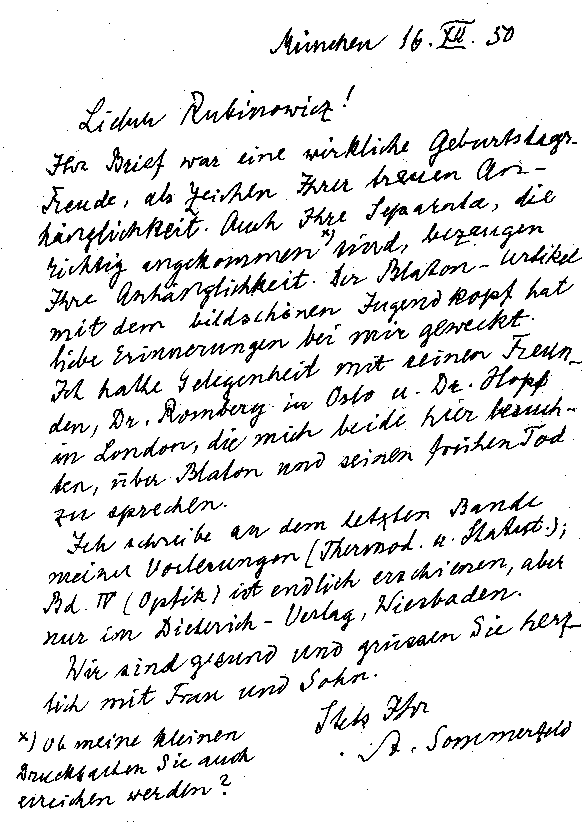 München 16. XII. 50
Lieber Rubinowicz!
Ihr Brief war eine wirkliche Geburtstags-
Freude, als Zeichen Ihrer treuen An-
hänglichkeit. Auch Ihre Separata, die
richtig angekommen x) sind, bezeugen
Ihre Anhänglichkeit. Der Blaton-Artikel
mit dem bildschönen Jugendkopf hat
liebe Erinnerungen bei mir geweckt.
Ich hatte Gelegenheit mit seinen Freun-
den, Dr. Romberg in Oslo u. Dr. Hopf
in London, die mich beide hier besuch-
ten, über Blaton und seinen frühen Tod
zu sprechen.
Ich schreibe an dem letzten Bande
meiner Vorlesungen (Thermod. u. Statist.);
Bd. IV (Optik) ist endlich erschienen, aber
nur im Dieterich-Verlag, Wiesbaden.
Wir sind gesund und grüssen Sie herz-
lich mit Frau und Sohn.
Stets Ihr
A. Sommerfeld
x) Ob meine kleinen
Drucksachen Sie auch
erreichen werden?